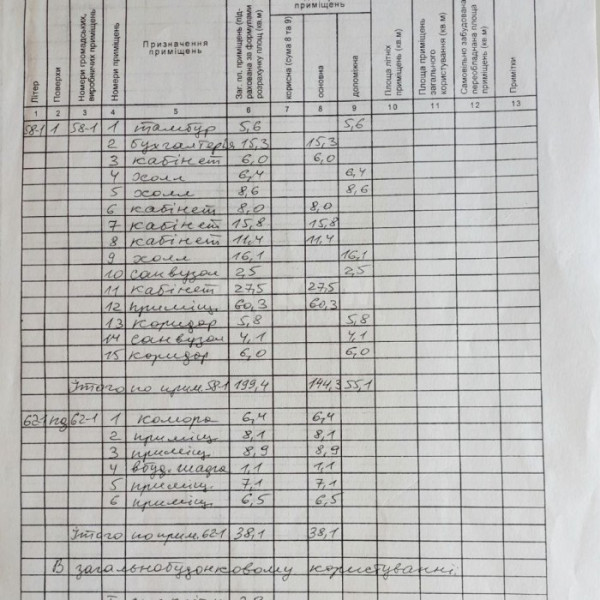 приміщень
Літер
Поверхи
Номери громадських, виробничих приміщень
Номери приміщень
Призначення приміщень
Заг. пл. приміщень (підрахована за формулами розрахунку площ (кв.м)
корисна (сума 8 та 9)
основна
допоміжна
Площа літніх приміщень (кв.м)
Площа приміщень загального користування (кв.м)
Самовільно забудована переобладнана площа приміщень (кв.м)
Примітки
1 2 3 4 5 6 7 8 9 10 11 12 13
58-1 1 58-1 1 тамбур 5,6 5,6
2 бухгалтерія 15,3 15,3
3 кабінет 6,0 6,0
4 холл 6,4 6,4
5 холл 8,6 8,6
6 кабінет 8,0 8,0
7 кабінет 15,8 15,8
8 кабінет 11,4 11,4
9 холл 16,1 16,1
10 санвузол 2,5 2,5
11 кабінет 27,5 27,5
12 приміщ. 60,3 60,3
13 коридор 5,8 5,8
14 санвузол 4,1 4,1
15 коридор 6,0 6,0
Итого по прим 58-1 199,4 144,3 55,1
62-1 пд 62-1 1 комора 6,4 6,4
2 приміщ. 8,1 8,1
3 приміщ. 8,9 8,9
4 вбуд. шафа 1,1 1,1
5 приміщ. 7,1 7,1
6 приміщ. 6,5 6,5
Итого по прим. 62-1 38,1 38,1
В загальнобудонковому користуванні: